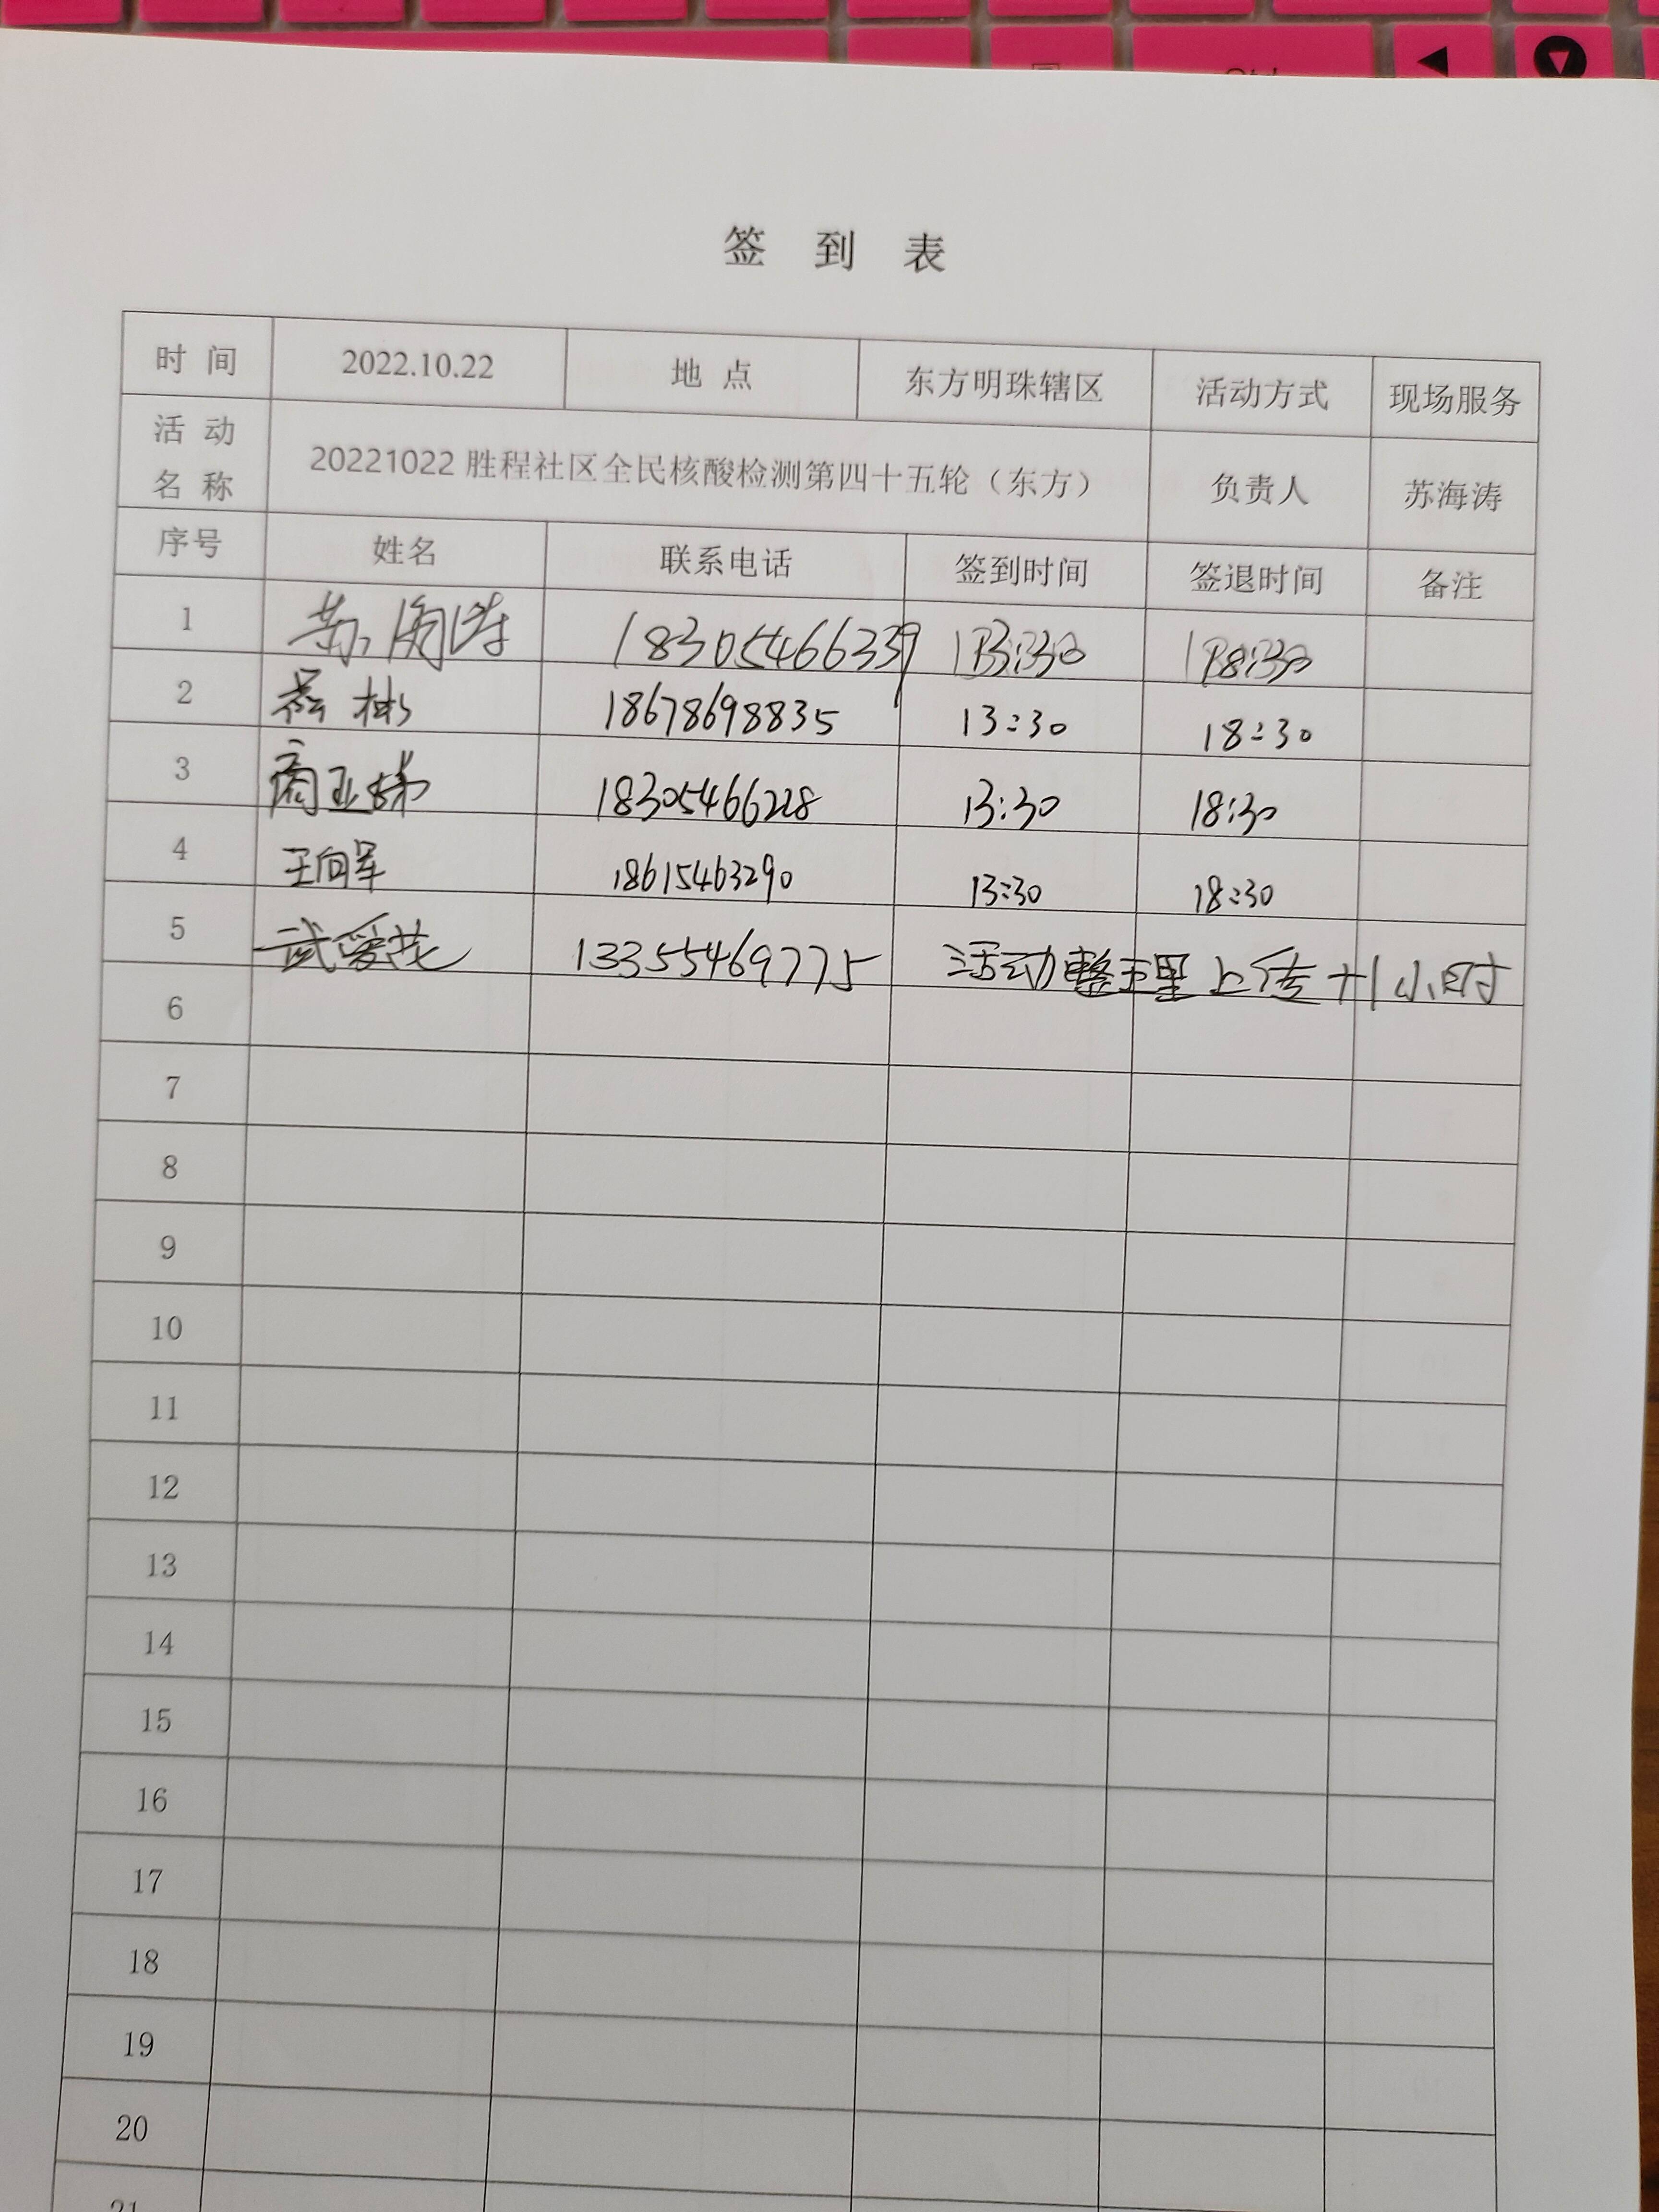 签 到 表
时 间 2022.10.22 地 点 东方明珠辖区 活动方式 现场服务
活 动 名 称 20221022 胜程社区全民核酸检测第四十五轮（东方） 负责人 苏海涛
序号 姓名 联系电话 签到时间 签退时间 备注
1 苏海涛 18305466339 13:30 18:30
2 彬 18678698835 13:30 18:30
3 商亚娣 18305466228 13:30 18:30
4 王向军 18615463290 13:30 18:30
5 武爱花 13355469775 活动整理上传+1小时
6
7
8
9
10
11
12
13
14
15
16
17
18
19
20
21